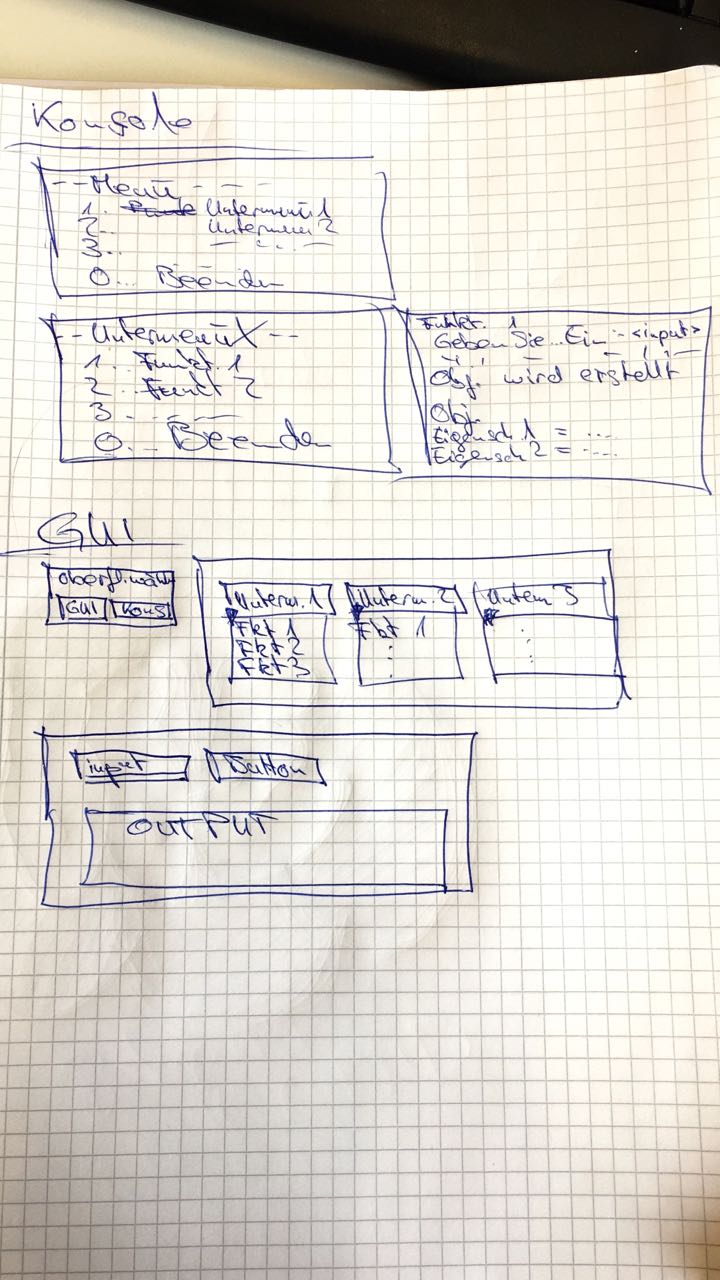 Konsole
--Menü - - -
1.. Untermenü 1
2.. Untermenü 2
3.. - - . . . - -
0... Beenden
-- Untermenü X --
1... Funkt. 1
2... Funkt 2
3...
0... Beenden
Funkt. 1
Geben Sie... Ein: <input>
Obj. wird erstellt
Obj.
Eigensch. 1 = ....
Eigensch 2 = ....
GUI
GUI Kons
Unterm. 1 Unterm. 2 Unterm 3
Fkt 1 Fkt 1
Fkt 2
Fkt 3
input Button
OUTPUT